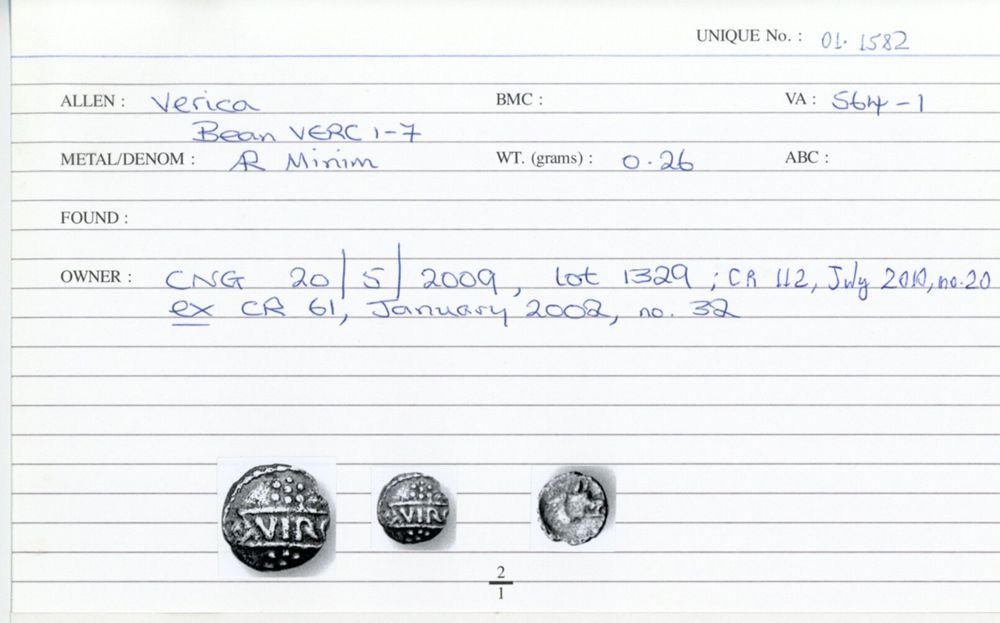 UNIQUE No. : 01. 1582
ALLEN : Verica BMC : VA : 564-1
Bean VERC 1-7
METAL/DENOM : AR Minim WT. (grams) : 0.26 ABC :
FOUND :
OWNER : CNG 20/5/2009, lot 1329 ; CR 112, July 2010, no. 20
ex CR 61, January 2002, no. 32
VIR VIR
2
1